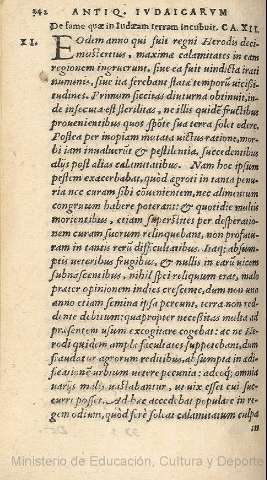 342 ANTIQ. IVDAICARVM
De fame quæ in Iudæam terram incubuit. CA. XII.
XI. EOdem anno qui fuit regni Herodis deci
mustertius, maxima calamitates in eam
regionem ingruerunt, siue ea fuit vindicta irati
numinis, siue ita ferebant stata temporũ vicissi-
tudines. Primùm siccitas diuturna obtinuit, in-
de insecuta est sterilitas, ne illis quidẽ fructibus
prouenientibus quos spõte sua terra solet edere.
Postea per inopiam mutata victus ratione, mor-
bi iam inualuerũt & pestilentia, succedentibus
alijs post alias calamitatibus. Nam hoc ipsum
pestem exacerbabat, quòd ægroti in tanta penu-
ria nec curam sibi cõuenientem, nec alimentum
congruum habere poterant: & quotidie multis
morientibus, etiam superstites per desperatio-
nem curam suorum relinquebant, non profutu-
ram in tantis rerũ difficultatibus. Itaq; absum-
ptis veteribus frugibus, & nullis in earũ vicem
subnascentibus, nihil spei reliquum erat, malo
præter opinionem indies crescente, dum non uno
anno etiam semina ipsa pereunt, terra non red-
dente debitum: quapropter necessitas multa ad
præsentem usum excogitare cogebat: ac ne He-
rodi quidem amplæ facultates suppetebant, dum
fraudatur agrorum reditibus, absumpta in ædi-
ficationẽ urbium vetere pecunia: adeoq; omnia
varijs malis vastabantur, ut vix esset cui suc-
curri posset. Ad hæc accedebat populare in re-
gem odium, quòd ferè solẽat calamitatum culpa
in
Ministerio de Educación, Cultura y Deporte